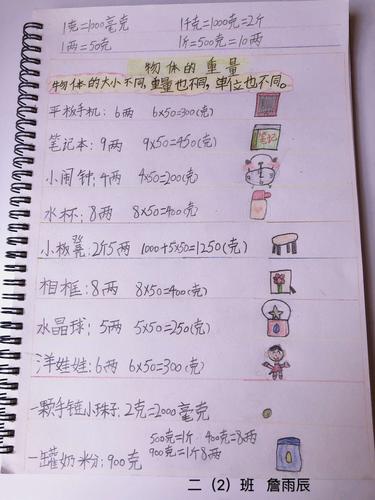 1克=1000毫克 1千克=1000克=2斤
1两=50克 1斤=500克=10两
物体的重量
物体的大小不同,重量也不同,单位也不同。
平板手机:6两 6×50=300(克)
笔记本:9两 9×50=450(克)
笔记
小闹钟:4两 4×50=200(克)
水杯:8两 8×50=400(克)
小板凳:2斤5两 1000+5×50=1250(克)
相框:8两 8×50=400(克)
水晶球:5两 5×50=250(克)
洋娃娃:6两 6×50=300(克)
一颗手链小珠子:2克=2000毫克
500克=1斤 400克=8两
一罐奶粉:900克 900克=1斤8两
二(2)班 詹雨辰